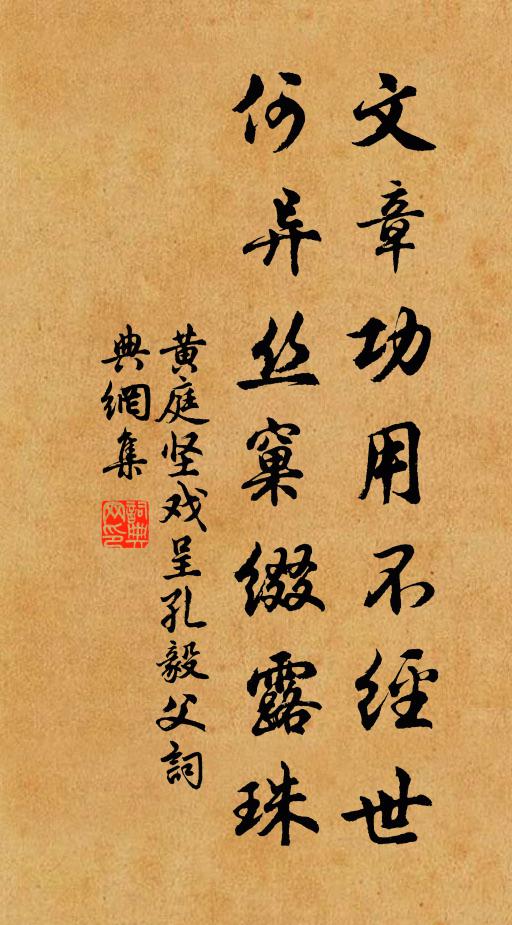 文章功用不經世
何异丝窠缀露珠
黄庭坚戏呈孔毅父詞
典網集
詞典
网印